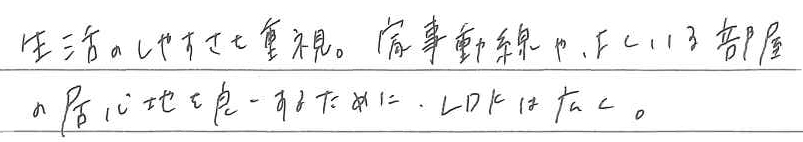 生活のしやすさを重視。家事動線や、よくいる部屋
の居心地を良くするために、LDKは広く。